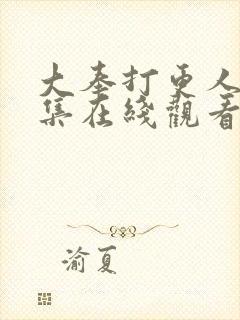 大奉打更人
集在綫觀看
渝夏